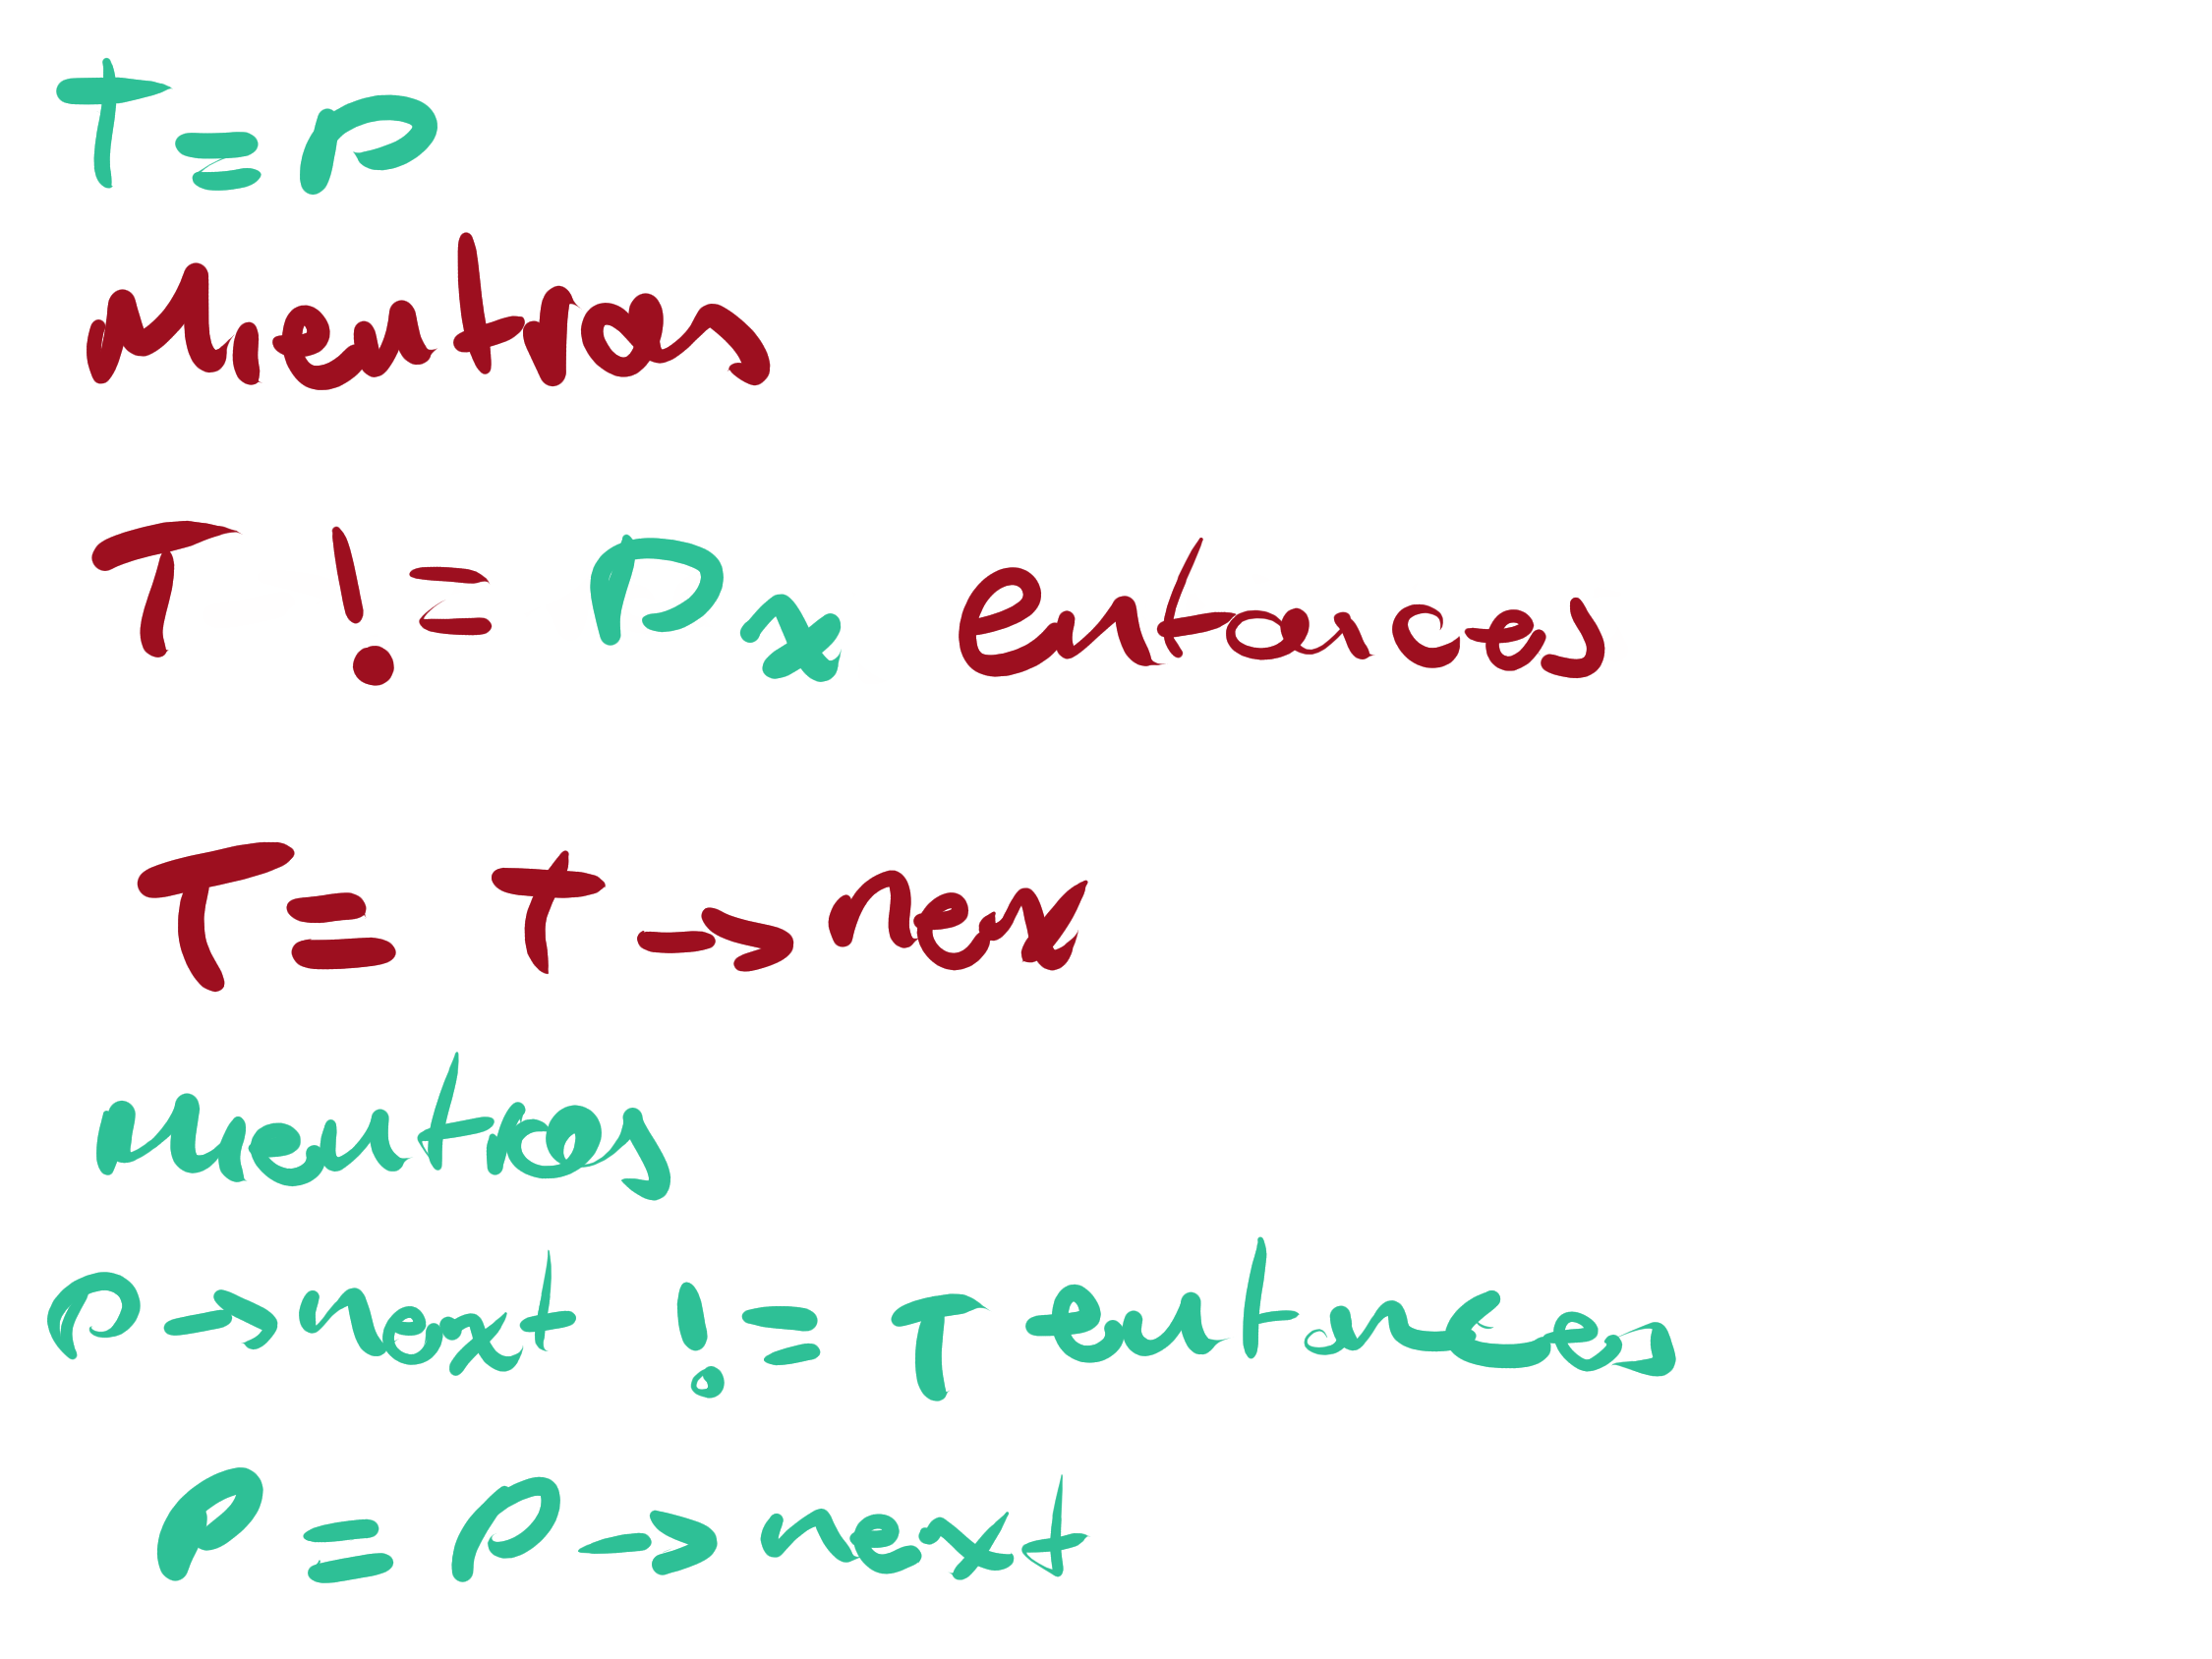 T = P
Mientras
T != Px entonces
T = t -> nex
mientras
P -> next != T entonces
P = P -> next